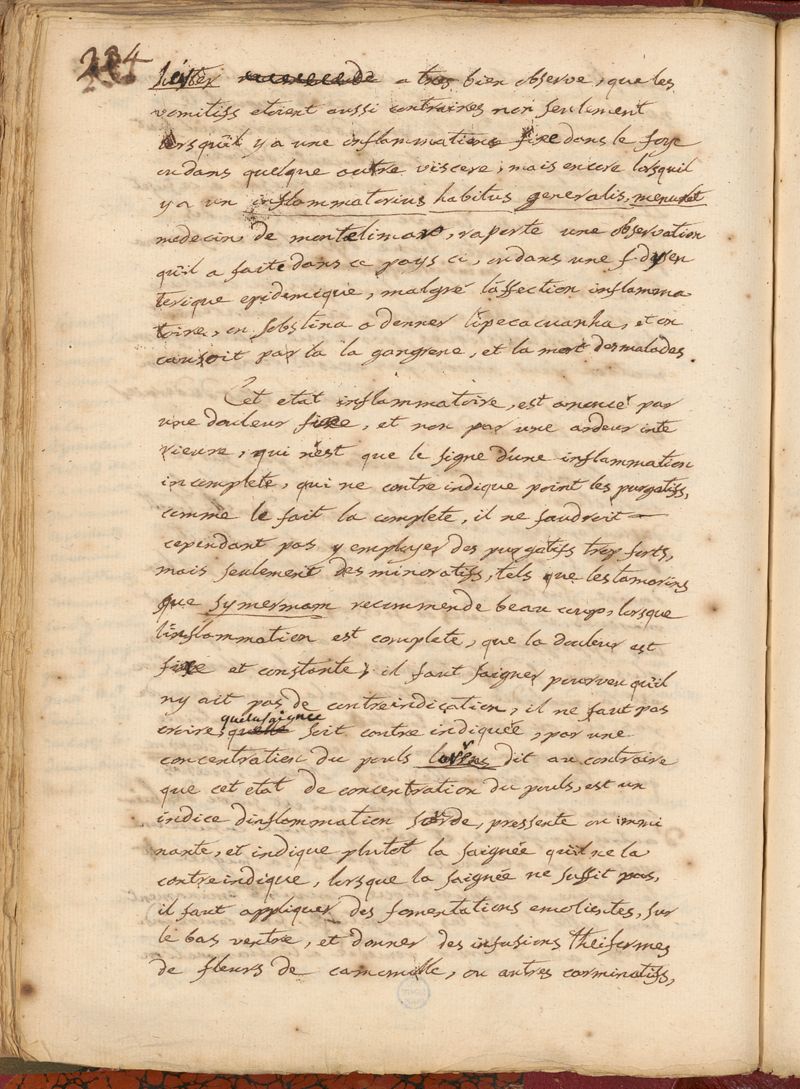 284
a tres bien observe, que les
vomitifs etoient aussi contraires non seulement
lorsqu'il y a une inflammation fixe dans le foye
ou dans quelque autre viscere, mais encore lorsquil
y a un inflammatorius habitus generalis, menuret
medecin de montelimar, raporte une observation
qu'il a faite dans ce pays ci, ou dans une f. dysen
terique epidemique, malgré l'affection inflamma
toire, on s'obstina a donner l'ipecacuanha, et on
causoit par la la gangrene, et la mort des malades.
Cet etat inflammatoire, est anoncé par
une douleur fixe, et non par une ardeur inte
rieure, qui n'est que le signe d'une inflammation
incomplete, qui ne contreindique point les purgatifs,
comme le fait la complete, il ne faudroit
cependant pas y employer des purgatifs trop forts,
mais seulement des minoratifs, tels que les tamarins
que symermam recommende beaucoup, lorsque
l'inflammation est complete, que la douleur est
fixe et constante, il faut saigner pourveu qu'il
n'y ait pas de contreindication, il ne faut pas
croire, que la saignée soit contre indiquée, par une
concentration du pouls dit au contraire
que cet etat de concentration du pouls, est un
indice d'inflammation sourde, presente ou immi
nante, et indique plutot la saignée qu'il ne la
contreindique, lorsque la saignée ne suffit pas,
il faut appliquer des fomentations emolientes, sur
le bas ventre, et donner des infusions theiformes
de fleurs de camomille, ou autres carminatifs,